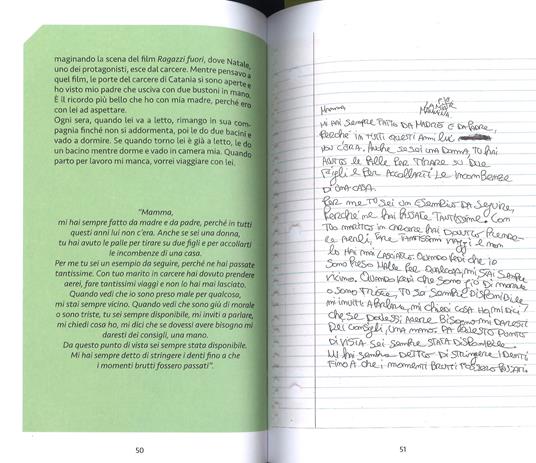 maginando la scena del film Ragazzi fuori, dove Natale,
uno dei protagonisti, esce dal carcere. Mentre pensavo a
quel film, le porte del carcere di Catania si sono aperte e
ho visto mio padre che usciva con due bustoni in mano.
È il ricordo più bello che ho con mia madre, perché ero
con lei ad aspettare.
Ogni sera, quando lei va a letto, rimango in sua com-
pagnia finché non si addormenta, poi le do due bacini e
vado a dormire. Se quando torno lei è già a letto, le do
un bacino mentre dorme e vado in camera mia. Quando
parto per lavoro mi manca, vorrei viaggiare con lei.
"Mamma,
mi hai sempre fatto da madre e da padre, perché in tutti
questi anni lui non c'era. Anche se sei una donna,
tu hai avuto le palle per tirare su due figli e per accollarti
le incombenze di una casa.
Per me tu sei un esempio da seguire, perché ne hai passate
tantissime. Con tuo marito in carcere hai dovuto prendere
aerei, fare tantissimi viaggi e non lo hai mai lasciato.
Quando vedi che io sono preso male per qualcosa,
mi stai sempre vicino. Quando vedi che sono giù di morale
o sono triste, tu sei sempre disponibile, mi inviti a parlare,
mi chiedi cosa ho, mi dici che se dovessi avere bisogno mi
daresti dei consigli, una mano.
Da questo punto di vista sei sempre stata disponibile.
Mi hai sempre detto di stringere i denti fino a che
i momenti brutti fossero passati".
50
Mamma
Mi hai sempre fatto da madre e da padre,
perché in tutti questi anni lui
non c'era. Anche se sei una donna, tu hai
avuto le palle per tirare su due
figli e per accollarti le incombenze
di una casa.
Per me tu sei un esempio da seguire,
perché ne hai passate tantissime. Con
tuo marito in carcere hai dovuto prende-
re aerei, fare tantissimi viaggi e non
lo hai mai lasciato. Quando vedi che io
sono preso male per qualcosa, mi stai sempre
vicino. Quando vedi che sono giù di morale
o sono triste, tu sei sempre disponibile
mi inviti a parlare, mi chiedi cosa ho, mi dici
che se dovessi avere bisogno mi daresti
dei consigli, una mano. Da questo punto
di vista sei sempre stata disponibile.
Mi hai sempre detto di stringere i denti
fino a che i momenti brutti fossero passati.
51